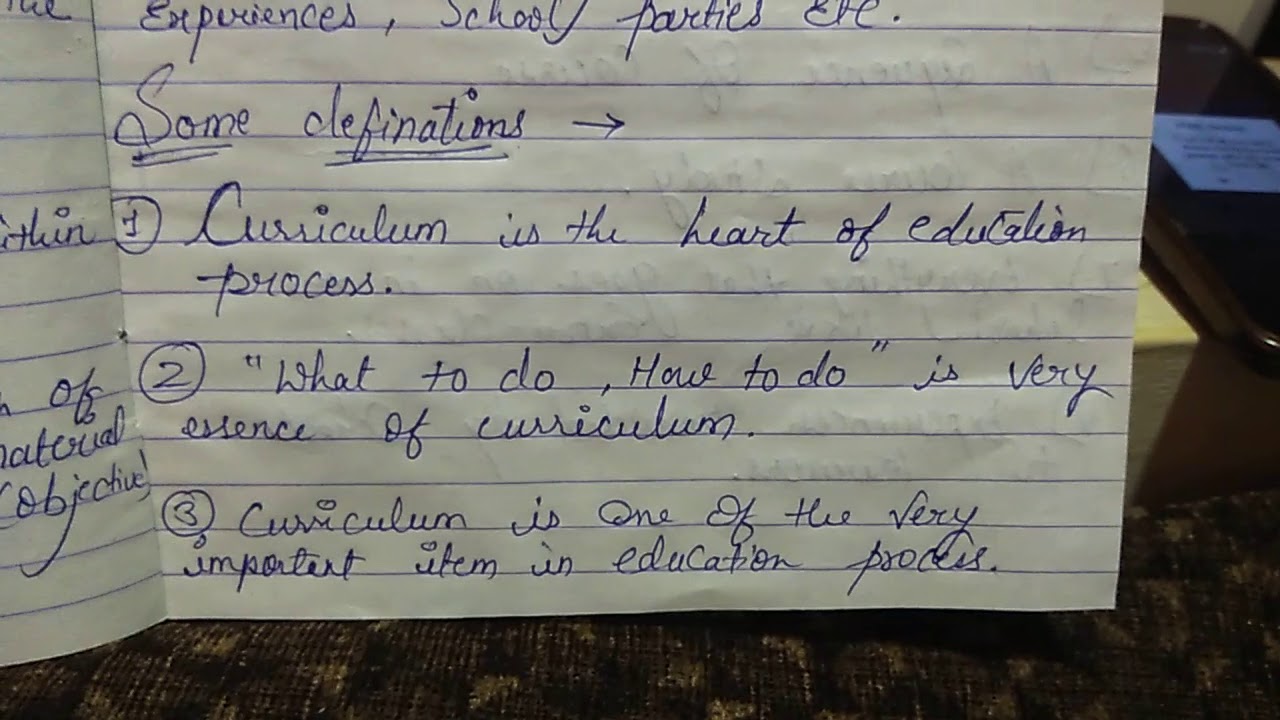 Experiences, School parties etc.
Some definations →
① Curriculum is the heart of education
process.
② "What to do, How to do" is very
essence of curriculum.
③ Curriculum is one of the very
important item in education process.
ithin
of
material
(objective)